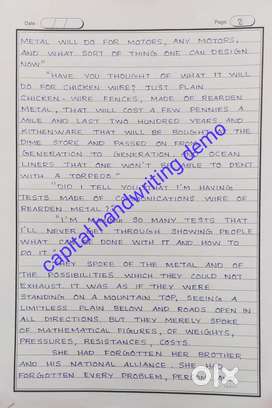 Date
Page 2
METAL WILL DO FOR MOTORS, ANY MOTORS,
AND WHAT SORT OF THING ONE CAN DESIGN
NOW"
"HAVE YOU THOUGHT OF WHAT IT WILL
DO FOR CHICKEN WIRE? JUST PLAIN
CHICKEN-WIRE FENCES, MADE OF REARDEN
METAL, THAT WILL COST A FEW PENNIES A
MILE AND LAST TWO HUNDRED YEARS AND
KITHENWARE THAT WILL BE BOUGHT THE
DIME STORE AND PASSED ON FROM
GENERATION TO GENERATION OCEAN
LINERS THAT ONE WON'T BE ABLE TO DENT
WITH A TORPEDO."
"DID I TELL YOU THAT I'M HAVING
TESTS MADE OF COMMUNICATIONS WIRE OF
REARDEN METAL?"
"I'M SO MANY TESTS THAT
I'LL NEVER GET THROUGH SHOWING PEOPLE
WHAT CAN DONE WITH IT AND HOW TO
DO IT
THEY SPOKE OF THE METAL AND OF
THE POSSIBILITIES WHICH THEY COULD NOT
EXHAUST. IT WAS AS IF THEY WERE
STANDING ON A MOUNTAIN TOP, SEEING A
LIMITLESS PLAIN BELOW AND ROADS OPEN IN
ALL DIRECTIONS. BUT THEY MERELY SPOKE
OF MATHEMATICAL FIGURES, OF WEIGHTS,
PRESSURES, RESISTANCES, COSTS.
SHE HAD FORGOTTEN HER BROTHER
AND HIS NATIONAL ALLIANCE. SHE
FORGOTTEN EVERY PROBLEM,
capital handwriting demo
OLX